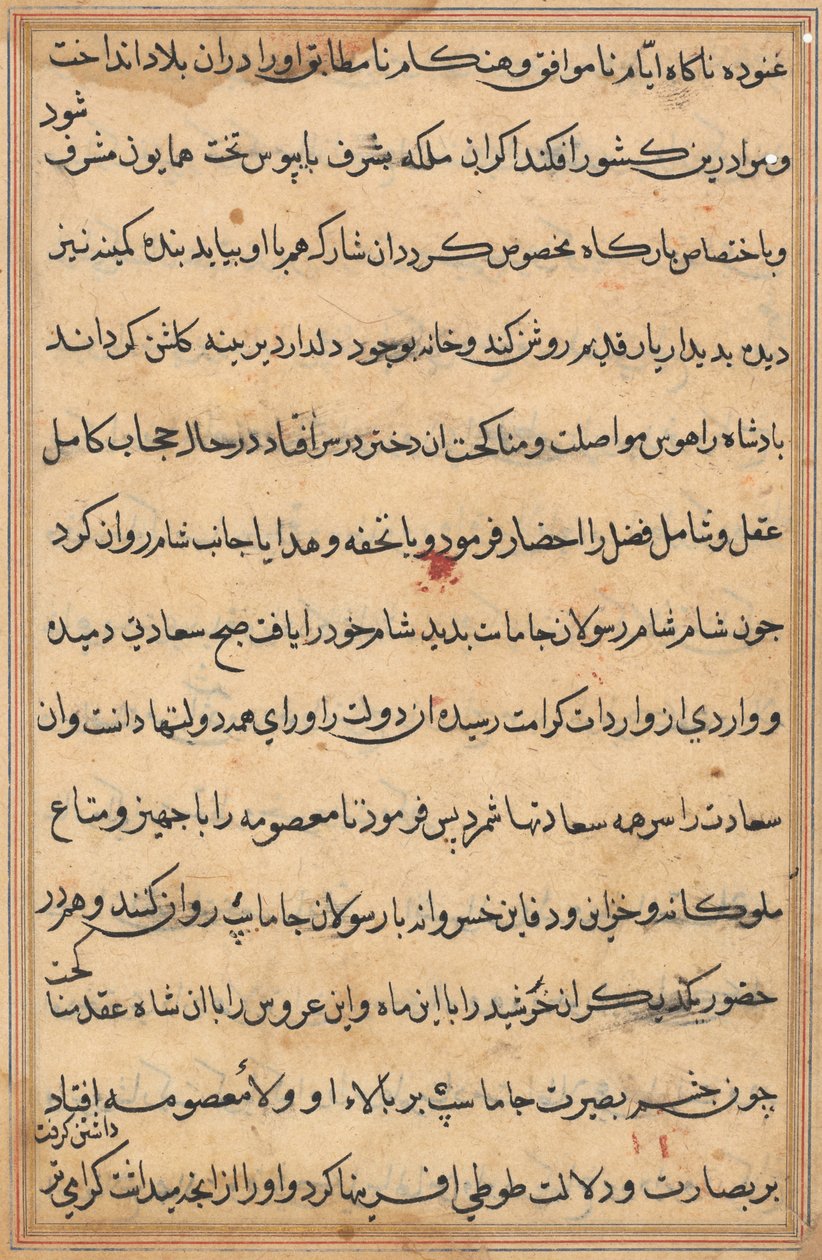 غنوده ناکاه ایّام ناموافق و هنکام نامطابق او را دران بلاد انداخت
شود
و مرا درین کشور افکند اکر ان ملکه بشرف پایبوس تخت همایون مشرف
و باختصاص بارکاه مخصوص کردد ان شارک هم با او بیاید بندهٔ کمینه نیز
دیده بدیدار یار قدیم روشن کند و خانه بوجود دلدار دیرینه کلشن کرداند
بادشاه را هوس مواصلت و مناکحت ان دختر در سر افتاد در حال حجاب کامل
عقل و شامل فضل را احضار فرمود و با تحفه و هدایا جانب شام روان کرد
جون شام شام رسولان جاماست بدید شام خود را یافت صبح سعادتی دمیده
و واردی از واردات کرامت رسیده ان دولت را ورای همه دولتها دانست و ان
سعادت را سر همه سعادتها شمرد پس فرموذ تا معصومه را با جهیز و متاع
ملوکانه و خزاین و دفاین خسروانه با رسولان جاماسپ روان کنند و هم در
کحت
حضور یکدیکر ان خرشید را با این ماه و این عروس را با ان شاه عقد منا
چون جشم بصیرت جاماسپ بر بالاء او و ولاء معصومه افتاد
داشتن کرفت
بر بصارت و دلالت طوطی افرینها کرد و او را از انجه میداشت کرامی تر